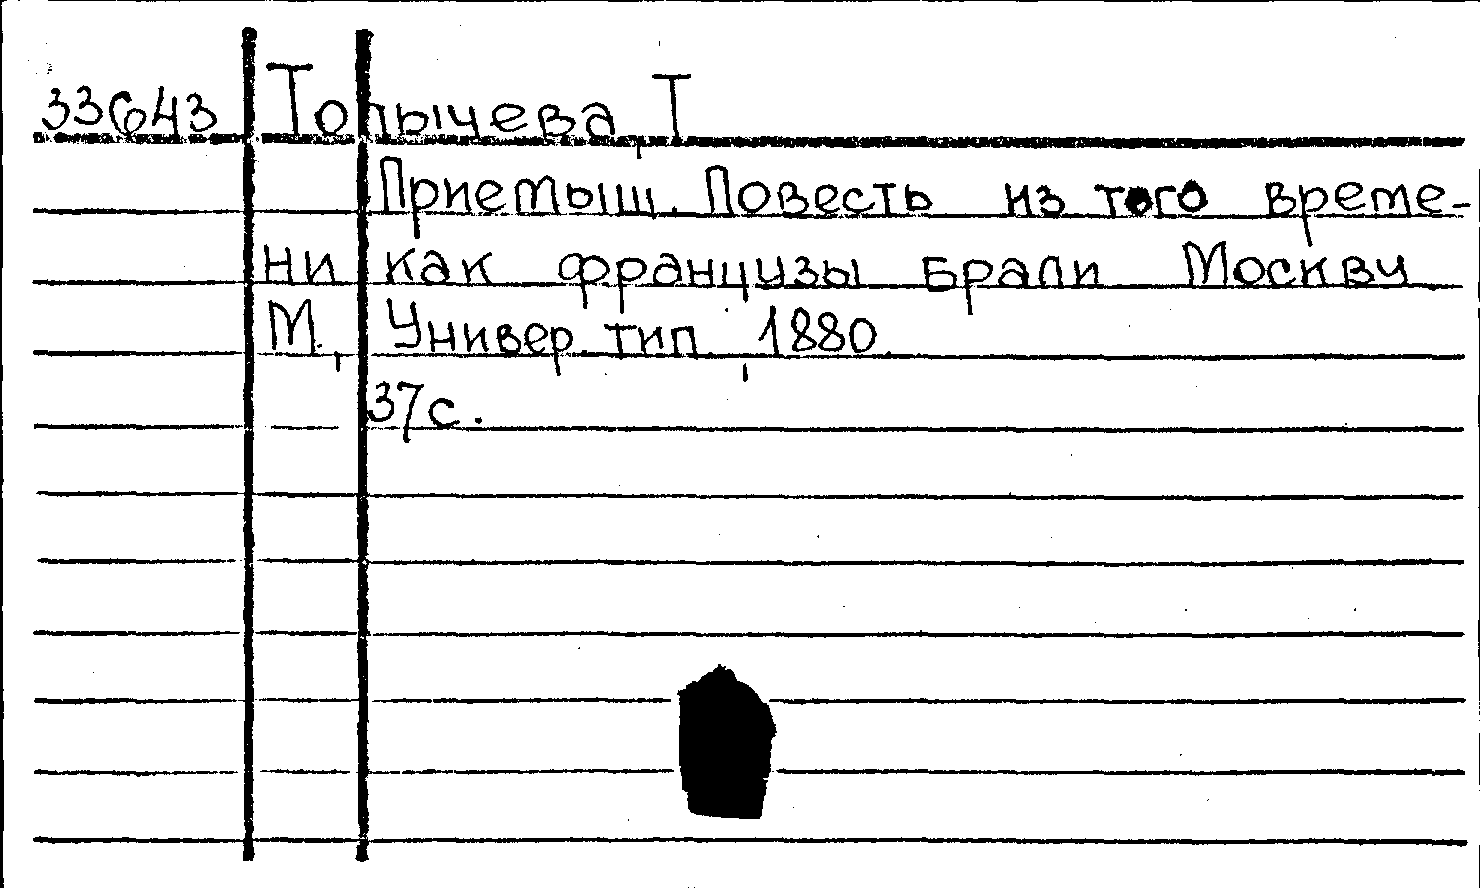 33643 Толычева, Т
Приемыш. Повесть из того време-
ни как французы брали Москву
М., Универ. тип., 1880.
37с.